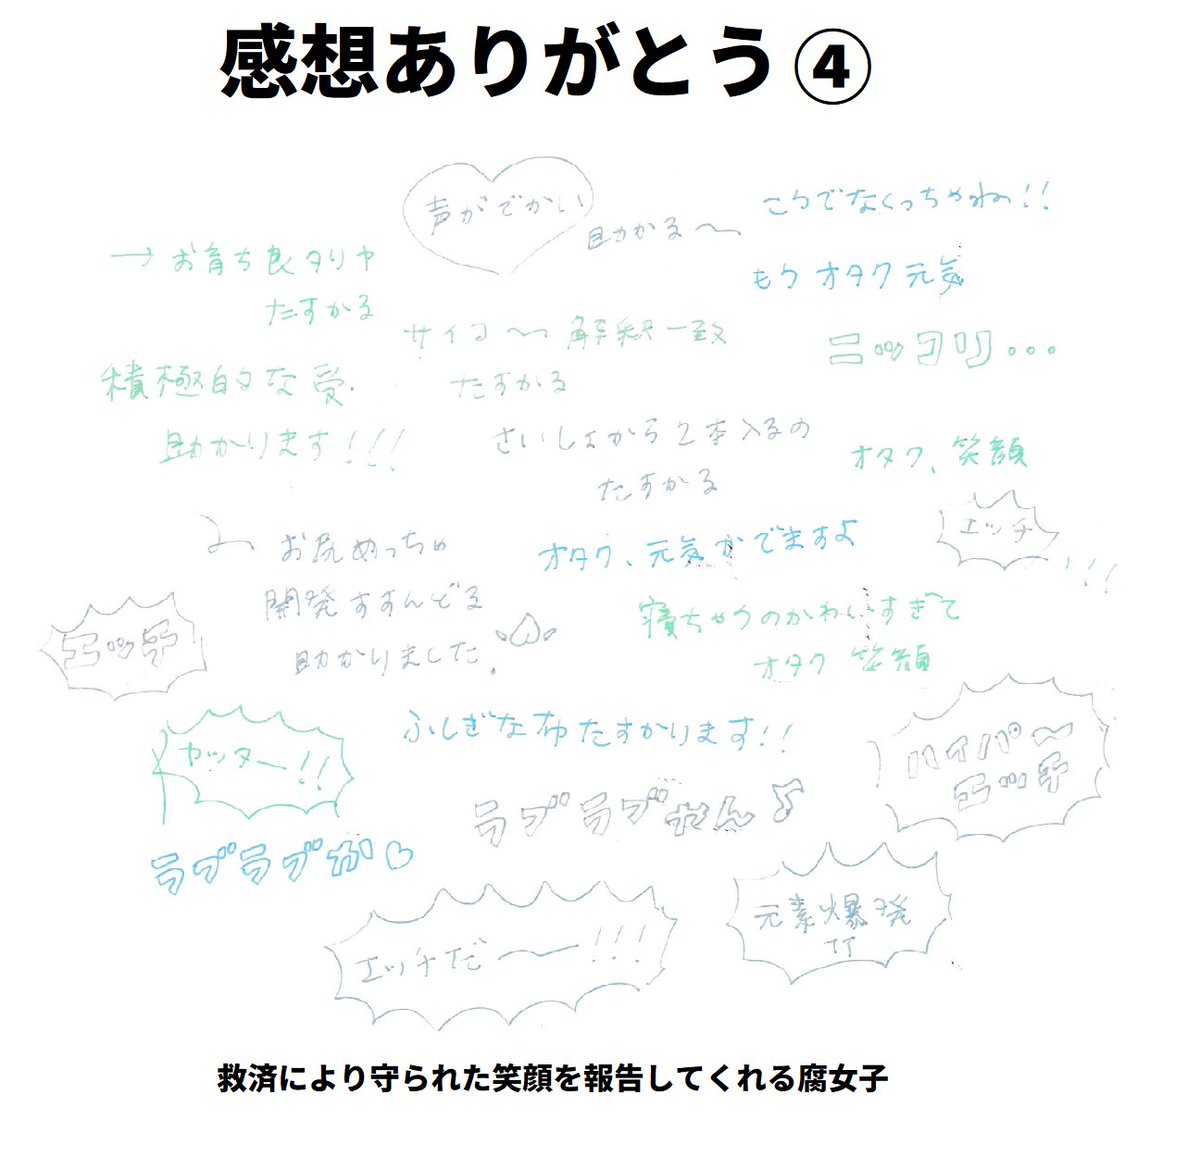 感想ありがとう④
声がでかい
助かる〜
こうでなくっちゃね!!
→お育ち良タリヤ
たすかる
もうオタク元気
サイコ〜解釈一致
たすかる
ニッコリ...
積極的な受
助かります!!!
さいしょから2本入るの
たすかる
オタク、笑顔
エッチ
!!
お尻めっちゃ
開発すすんどる
助かりました。
オタク、元気がでますよ
エッチ
寝ちゃうのかわいすぎて
オタク 笑顔
ヤッター!!
ふしぎな布たすかります!!
ハイパー
エッチ
ラブラブやん♪
ラブラブか♡
元素爆発
エッチだ〜!!!
救済により守られた笑顔を報告してくれる腐女子